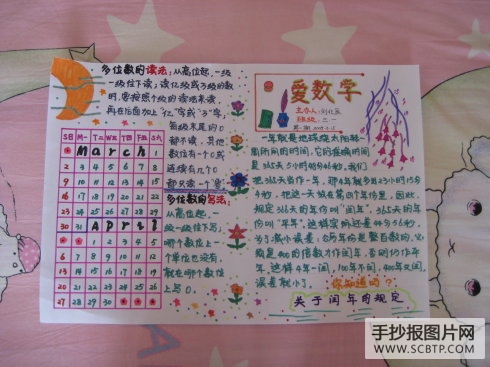 多位数的读法:从高位起,一级
一级往下读;读亿级或万级的数
时,要按照个级的读法来读,
再在后面加上"亿"字或"万"字,
每级末尾的0
都不读,其他
数位有一个0或
连续有几个0
都只读一个"零"
多位数的写法:
从高位起,一
级一级往下写,
哪个数位上一
个单位也没有,
就在哪个数位
上写0。
SB M- T= W三 T四 F五 S六
March 1
2 3 4 5 6 7 8
9 10 11 12 13 14 15
16 17 18 19 20 21 22
23 24 25 26 27 28 29
30 31 April
6 7 8 9 10 11 12
13 14 15 16 17 18 19
20 21 22 23 24 25 26
27 28 29 30
爱数学
主办人:
班级:二一
一年就是地球绕太阳转一
周所用的时间,它的准确时间
是365天5小时48分46秒,我们
把365天当作一年,那4年就多出23小时15分
4秒,把这一天放在第四个年份里,因此,
规定366天的年份叫"闰年",365天的年
份叫"平年",这样实际还差44分56秒,
为了减小误差:当年份是整百数的,必
须是400的倍数才作闰年,否则仍作平
年,这样4年一闰,100年不闰,400年又闰,
误差就小了。
你知道吗?
关于闰年的规定
手抄报图片网
WWW.SCBTP.COM